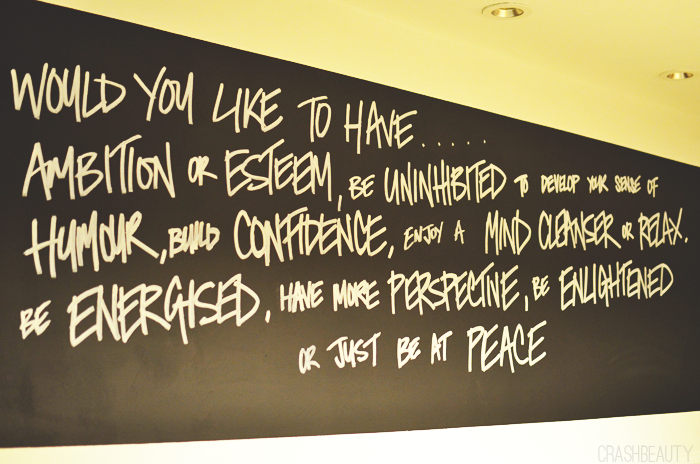 WOULD YOU LIKE TO HAVE.....
AMBITION OR ESTEEM, BE UNINHIBITED TO DEVELOP YOUR SENSE OF
HUMOUR, BUILD CONFIDENCE, ENJOY A MIND CLEANSER OR RELAX,
BE ENERGISED, HAVE MORE PERSPECTIVE, BE ENLIGHTENED
OR JUST BE AT PEACE
CRASHBEAUTY_